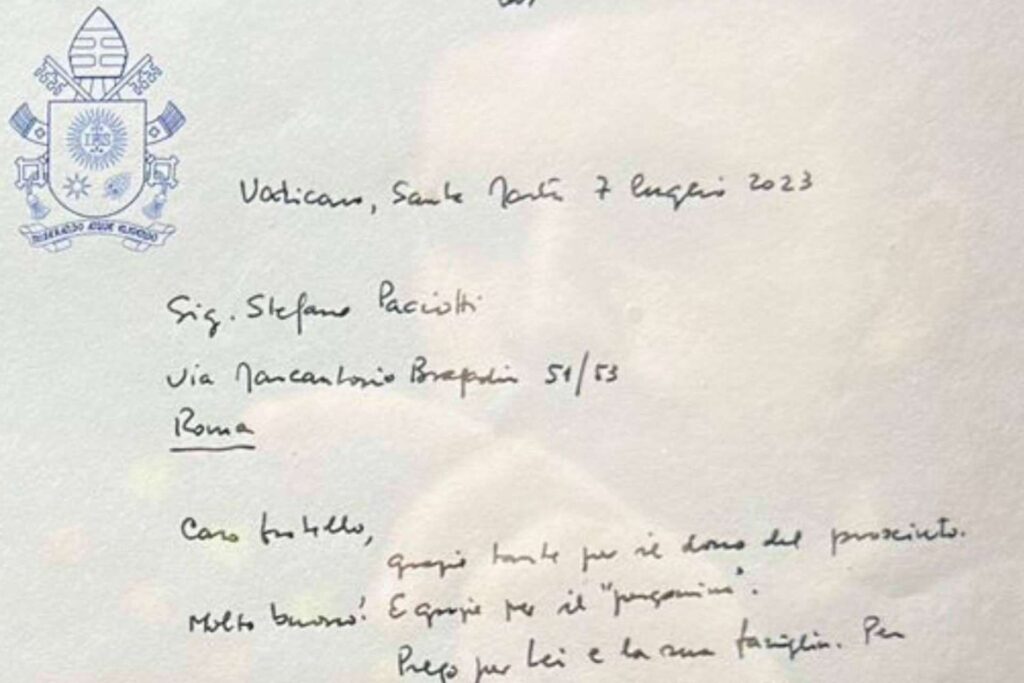 IHS
MISERANDO ATQUE ELIGENDO
Vaticano, Santa Marta 7 luglio 2023
Sig. Stefano Paciotti
Via Marcantonio Bragadin 51/53
Roma
Caro fratello,
grazie tante per il dono del prosciutto.
Molto buono! E grazie per il "pergamino".
Prego per Lei e la sua famiglia. Per